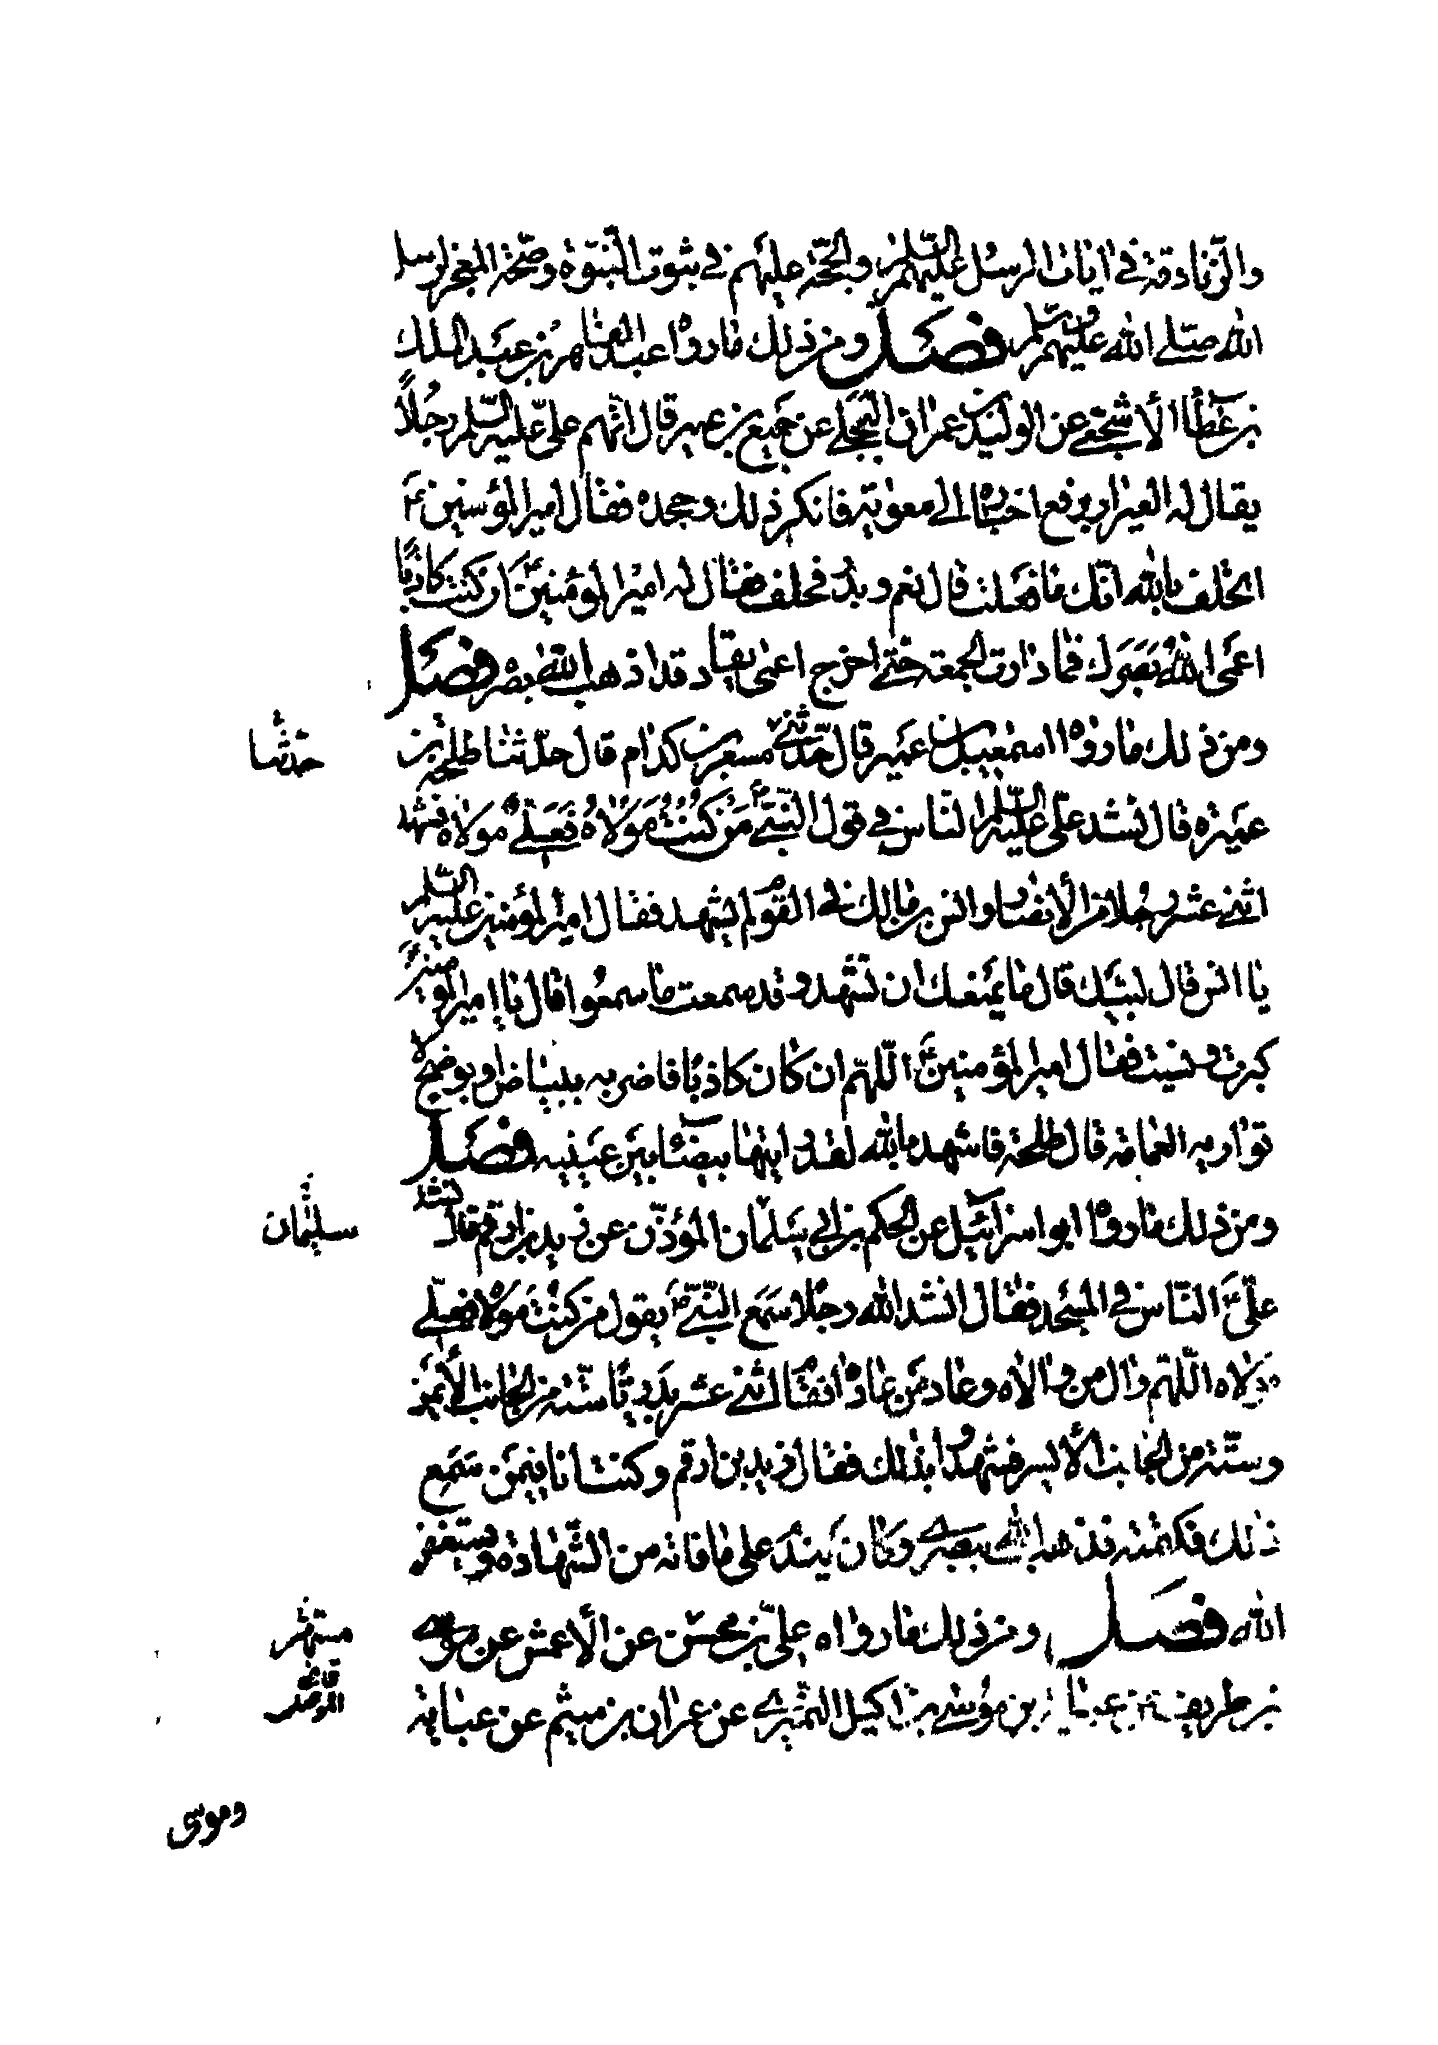 والزنادقة في ايات الرسل عليهم السلم والحجّة عليهم في ثبوت النبّوة وصحّة المعجز لرسل
الله صلّى الله عليهم وسلم فصل ومن ذلك ما رواه عبد القاهر بن عبد الملك
بن عطاء الأشجعي عن الوليد بن عمران البجلي عن جميع بن عمير قال اتّهم عليّ عليه السّلم رجُلاً
يقال له العيزار برفع اخباره الى معوية فانكر ذلك وجحده فقال امير المؤمنين ع
اتحلف بالله انّك ما فعلت قال نعم وبدر فحلف فقال له امير المؤمنين ع ان كنت كاذبًا
اعمى الله بصرك فما دارت الجمعة حتى اخرج اعمى يقاد قد اذهب الله بصره فصل
ومن ذلك ما رواه اسمعيل بن عمير قال حدّثني مسعر بن كدام قال حدّثنا طلحة بن
حدثنا
عميره قال نشد عليّ عليه السّلم النّاس في قول النّبيّ ص من كنت مولاه فعليّ مولاه فشهد
اثنى عشر رجُلا من الأنصار وانس بن مالك في القوم لم يشهد فقال امير المؤمنين عليه السّلم
يا انس قال لبيّك قال ما يمنعك ان تشهد وقد سمعت ما سمعوا قال يا امير المؤمنين
كبرت ونسيت فقال امير المؤمنين ع اللّهمّ ان كان كاذبًا فاضربه ببياض او بوضح لا
تواريه العمامة قال طلحة فاشهد بالله لقد رايتها بيضاء بين عينيه فصل
ومن ذلك ما رواه ابو اسرائيل عن الحكم بن ابي سلمان المؤذّن عن زيد بن ارقم قال نشد
سليمان
عليّ ع النّاس في المسجد فقال انشد الله رجُلا سمع النّبيّ ص يقول من كنت مولاه فعليّ
مولاه اللّهمّ وال من والاه وعاد من عاداه فقام اثنى عشر بدريًّا ستّة من الجانب الأيمن
وستّة من الجانب الأيسر فشهدوا بذلك فقال زيد بن ارقم وكنت انا فيمن سمع
ذلك فكتمته فذهب الله ببصري وكان يندم على ما فاته من الشّهادة ويستغفر
الله فصل ومن ذلك ما رواه عليّ بن محسن عن الأعمش عن موسى
مستهر
بن طريف عن عباية بن موسى بن اكيل النميري عن عمران بن ميثم عن عباية
وموسى